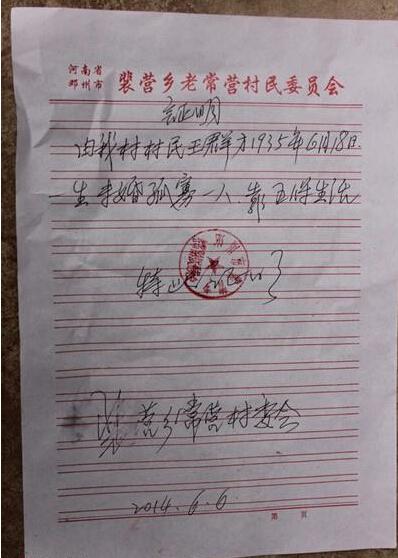 河南省
邓州市 裴营乡老常营村民委员会
证明
由我村村民王群方1935年6月18日
一生未婚孤寡一人 靠五保生活
特此证明
裴营乡常营村委会
2014.6.6
第 页